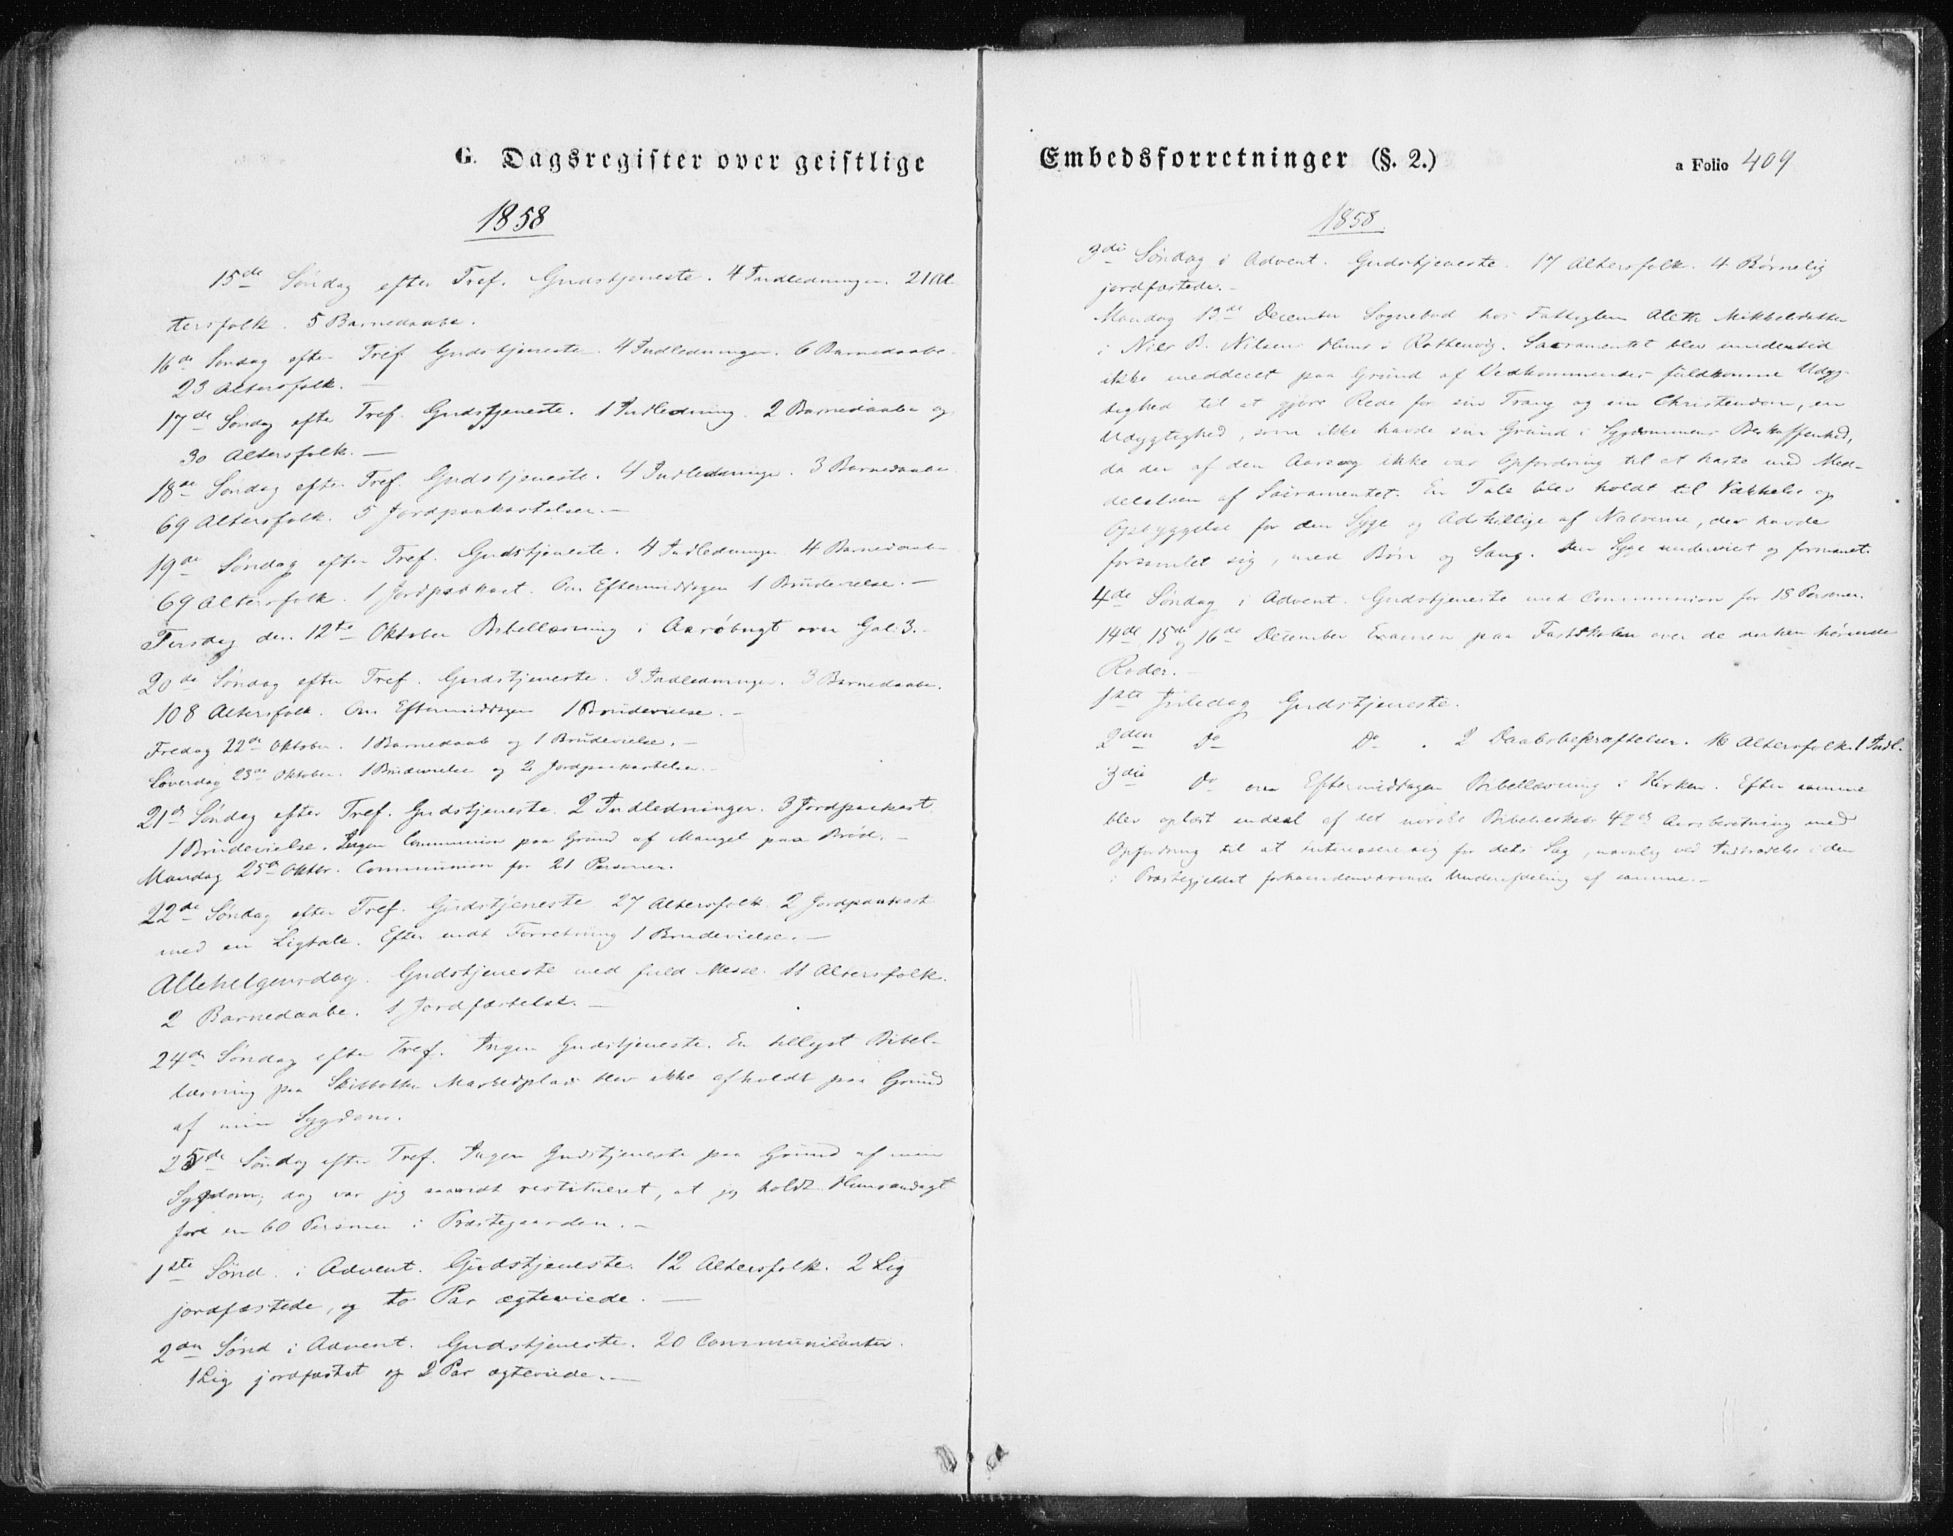 G. Dagsregister over geistlige
1858
15de Søndag efter Tref. Gudstjeneste. 4 Indledninger. 21 Al-
tersfolk. 5 Barnedaabe.
16de Søndag efter Tref. Gudstjeneste. 4 Indledninger. 6 Barnedaabe.
23 Altersfolk. —
17de Søndag efter Tref. Gudstjeneste. 1 Indledning. 2 Barnedaabe og
30 Altersfolk. —
18de Søndag efter Tref. Gudstjeneste. 4 Indledninger. 3 Barnedaabe.
69 Altersfolk. 5 Jordpaakastelser. —
19de Søndag efter Tref. Gudstjeneste. 4 Indledninger. 4 Barnedaabe
69 Altersfolk. 1 Jordpaakast. Om Eftermiddagen 1 Brudevielse. —
Tirsdag den 12te Oktober Bibellæsning i Aarøbugt over Gal. 3. —
20de Søndag efter Tref. Gudstjeneste. 3 Indledninger. 3 Barnedaabe.
108 Altersfolk. Om Eftermiddagen 1 Brudevielse. —
Fredag 22de Oktober. 1 Barnedaab og 1 Brudevielse. —
Løverdag 23de Oktober. 1 Brudevielse og 2 Jordpaakastelser. —
21de Søndag efter Tref. Gudstjeneste. 2 Indledninger. 3 Jordpaakast
1 Brudevielse. Ingen Communion paa Grund af Mangel paa Brød. —
Mandag 25de Oktbr. Communion for 21 Personer.
22de Søndag efter Tref. Gudstjeneste 27 Altersfolk 2 Jordpaakast
med en Ligtale. Efter endt Forretning 1 Brudevielse. —
Allehelgensdag. Gudstjeneste med fuld Messe. 11 Altersfolk.
2 Barnedaabe. 1 Jordfæstelse. —
24de Søndag efter Tref. Ingen Gudstjeneste. En tillyst Bibel-
læsning paa Skibotten Markedplads blev ikke afholdt paa Grund
af min Sygdom.
25de Søndag efter Tref. Ingen Gudstjeneste paa Grund af min
Sygdom; dog var jeg saavidt restitueret, at jeg holdt Huusandagt
for en 60 Personer i Præstegaarden. —
1ste Sønd. i Advent. Gudstjeneste. 12 Altersfolk. 2 Lig
jordfæstede, og to Par ægteviede. —
2den Sønd i Advent. Gudstjeneste. 20 Communicanter.
1 Lig jordfæstet og 2 Par ægteviede. —
Embedsforretninger (§. 2.)
a Folio 409
1858
3die Søndag i Advent. Gudstjeneste. 17 Altersfolk. 4 Børnelig
jordfæstede. —
Mandag 13de December Sognebud hos Fattiglem Aleth Mikkelsdatter
i Niels P. Nilsens Huus i Rottenvig. Sacramentet blev imidlertid
ikke meddeelt paa Grund af Vedkommendes fuldkomne Udyg-
tighed til at gjøre Rede for sin Trang og sin Christendom, en
Udygtighed, som ikke havde sin Grund i Sygdommens Beskaffenhed,
da der af den Aarsag ikke var Opfordring til at haste med Med-
delelsen af Sacramentet. En Tale blev holdt til Vækkelse og
Opbyggelse for den Syge og Adskillige af Naboerne, der havde
forsamlet sig, med Bøn og Sang. Den Syge underviist og formanet.
4de Søndag i Advent. Gudstjeneste med Communion for 18 Personer.
14de 15de og 16de December Examen paa Fastskolen over de derhen hørende
Roder. —
1ste Juledag Gudstjeneste.
2den Do Do. 2 Daabsbekræftelser. 16 Altersfolk. 1 Indl.
3die Do om Eftermiddagen Bibellæsning i Kirken. Efter samme
blev oplæst endeel af det norske Bibelselskabs 42de Aarsberetning med
Opfordring til at interessere sig for dets Sag, navnlig ved Indtrædelse i den
i Præstegjeldet forhaandenværende Underafdeling af samme. —